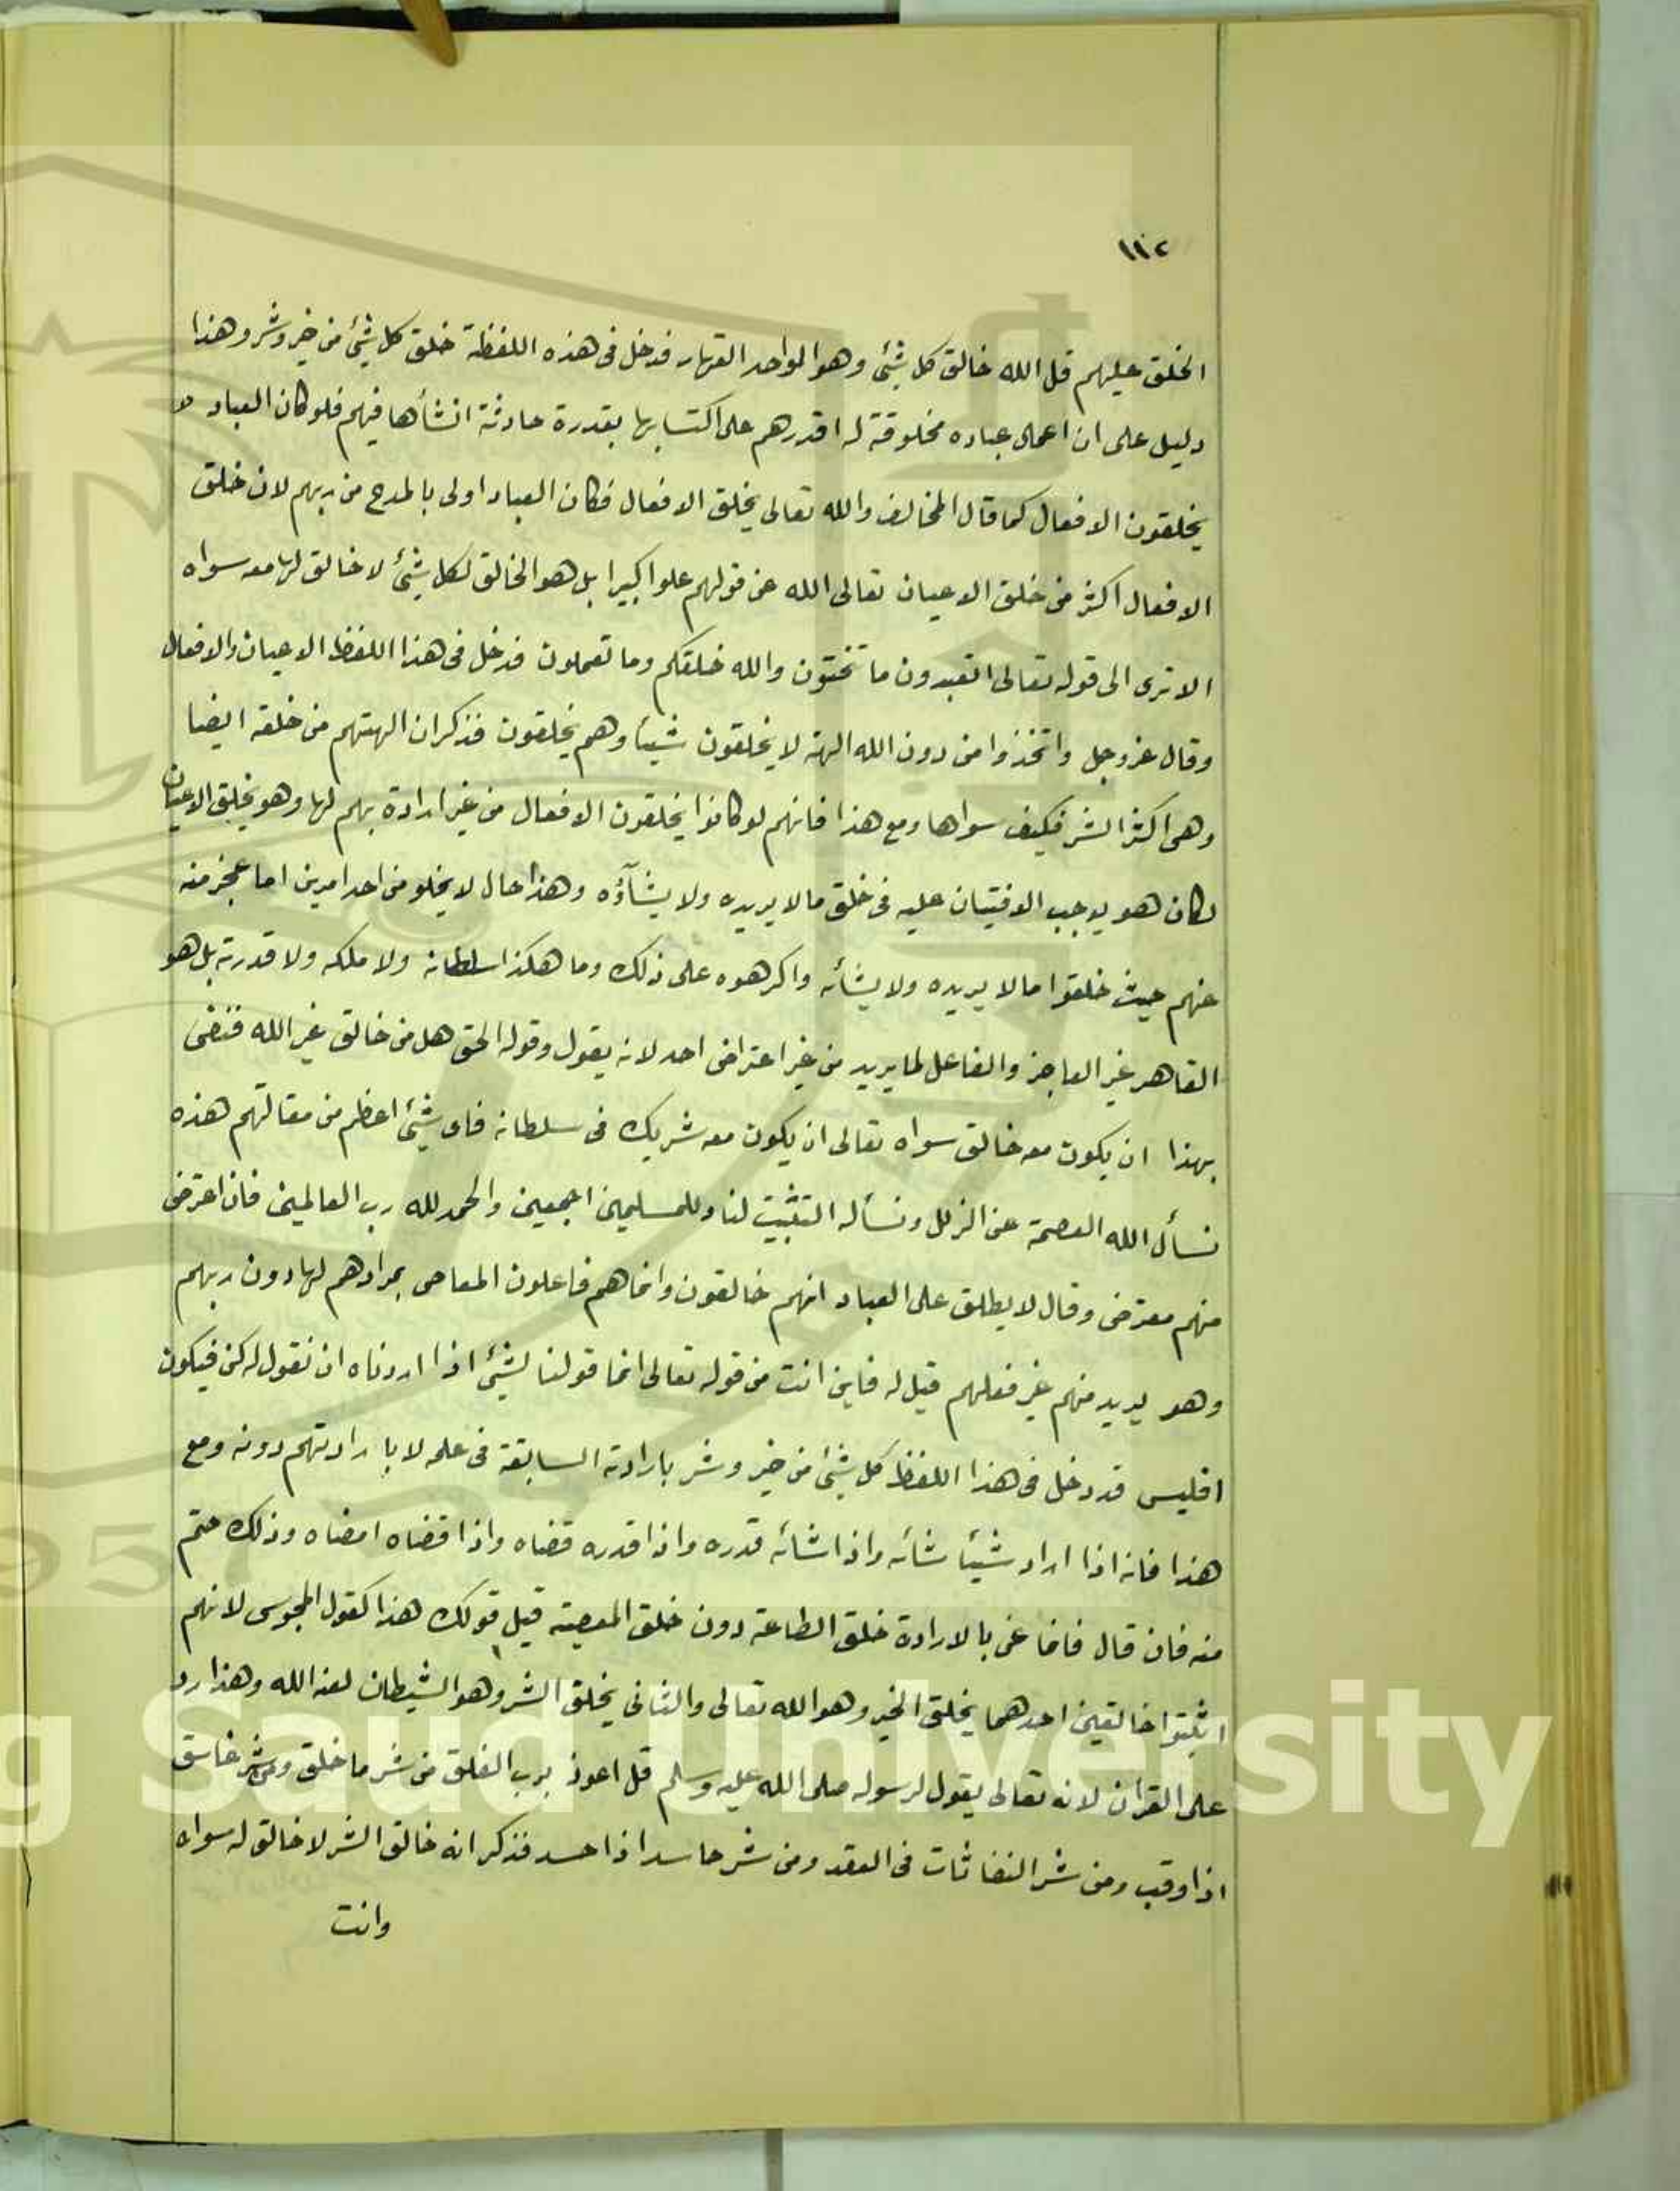 ١١٢
الخلق عليهم قل الله خالق كل شئ وهو الواحد القهار فدخل فى هذه اللفظة خلق كل شئ من خير وشر وهذا
دليل على ان اعمال عباده مخلوقة له اقدرهم على اكتسابها بقدرة حادثة انشأها فيهم فلو كان العباد
يخلقون الافعال كما قال المخالف والله تعالى يخلق الافعال فكان العباد اولى بالمدح من ربهم لان خلق
الافعال اكثر من خلق الاعيان تعالى الله عن قولهم علوا كبيرا بل هو الخالق لكل شئ لا خالق لها معه سواه
الا ترى الى قوله تعالى اتعبدون ما تنحتون والله خلقكم وما تعملون فدخل فى هذا اللفظ الاعيان والافعال
وقال عز وجل واتخذوا من دون الله الهة لا يخلقون شيئا وهم يخلقون فذكر ان الهتهم من خلقه ايضا
وهى اكثر الشر فكيف سواها ومع هذا فانهم لو كانوا يخلقون الافعال من غير ارادة بهم لها وهو يخلق الاعيان
لكان هو يوجب الافتيان عليه فى خلق ما لا يريده ولا يشآؤه وهذا حال لا يخلو من احد امرين اما عجز منه
عنهم حيث خلقوا ما لا يريده ولا يشأئه واكرهوه على ذلك وما هكذا سلطانه ولا ملكه ولا قدرته بل هو
القاهر غير العاجز والفاعل لما يريد من غير اعتراض احد لانه يقول وقوله الحق هل من خالق غير الله فنفى
بهذا ان يكون معه خالق سواه تعالى ان يكون معه شريك فى سلطانه فاى شئ اعظم من مقالتهم هذه
نسأل الله العصمة عن الزلل ونسأله التثبيت لنا وللمسلمين اجمعين والحمد لله رب العالمين فان اعترض
منهم معترض وقال لا يطلق على العباد انهم خالقون وانما هم فاعلون المعاصى بمرادهم لها دون ربهم
وهو يريد منهم غير فعلهم قيل له فاين انت من قوله تعالى انما قولنا لشئ اذا اردناه ان نقول له كن فيكون
افليس قد دخل فى هذا اللفظ كل شئ من خير وشر بارادته السابقة فى علمه لا بارادتهم دونه ومع
هذا فانه اذا اراد شيئا شائه واذا شائه قدره واذا قدره قضاه واذا قضاه امضاه وذلك حتم
منه فان قال فانما عنى بالارادة خلق الطاعة دون خلق المعصية قيل قولك هذا كقول المجوس لانهم
اثبتوا خالقين احدهما يخلق الخير وهو الله تعالى والثانى يخلق الشر وهو الشيطان لعنه الله وهذا رد
على القران لانه تعالى يقول لرسوله صلى الله عليه وسلم قل اعوذ برب الفلق من شر ما خلق ومن شر غاسق
اذا وقب ومن شر النفاثات فى العقد ومن شر حاسد اذا حسد فذكر انه خالق الشر لا خالق له سواه
وانت
g Saud University
957